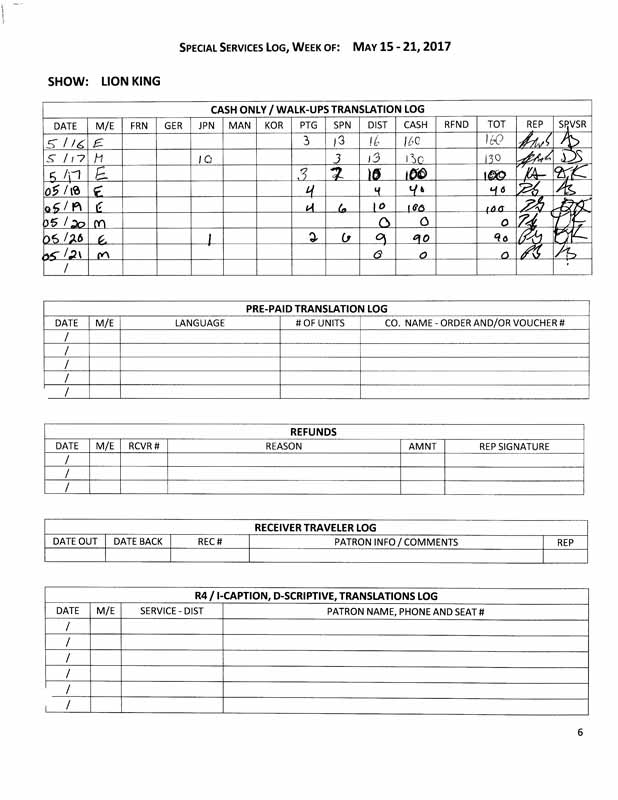 SPECIAL SERVICES LOG, WEEK OF: MAY 15 - 21, 2017
SHOW: LION KING
CASH ONLY / WALK-UPS TRANSLATION LOG
DATE M/E FRN GER JPN MAN KOR PTG SPN DIST CASH RFND TOT REP SPVSR
5/16 E 3 13 16 160 160
5/17 M 10 3 13 130 130 DS
5/17 E 3 7 10 100 100 KA
05/18 E 4 4 40 40
05/19 E 4 6 10 100 100
05/20 M 0 0 0
05/20 E 1 2 6 9 90 90
05/21 M 0 0 0
/
PRE-PAID TRANSLATION LOG
DATE M/E LANGUAGE # OF UNITS CO. NAME - ORDER AND/OR VOUCHER #
/
/
/
/
/
REFUNDS
DATE M/E RCVR # REASON AMNT REP SIGNATURE
/
/
/
RECEIVER TRAVELER LOG
DATE OUT DATE BACK REC # PATRON INFO / COMMENTS REP
R4 / I-CAPTION, D-SCRIPTIVE, TRANSLATIONS LOG
DATE M/E SERVICE - DIST PATRON NAME, PHONE AND SEAT #
/
/
/
/
/
/
6